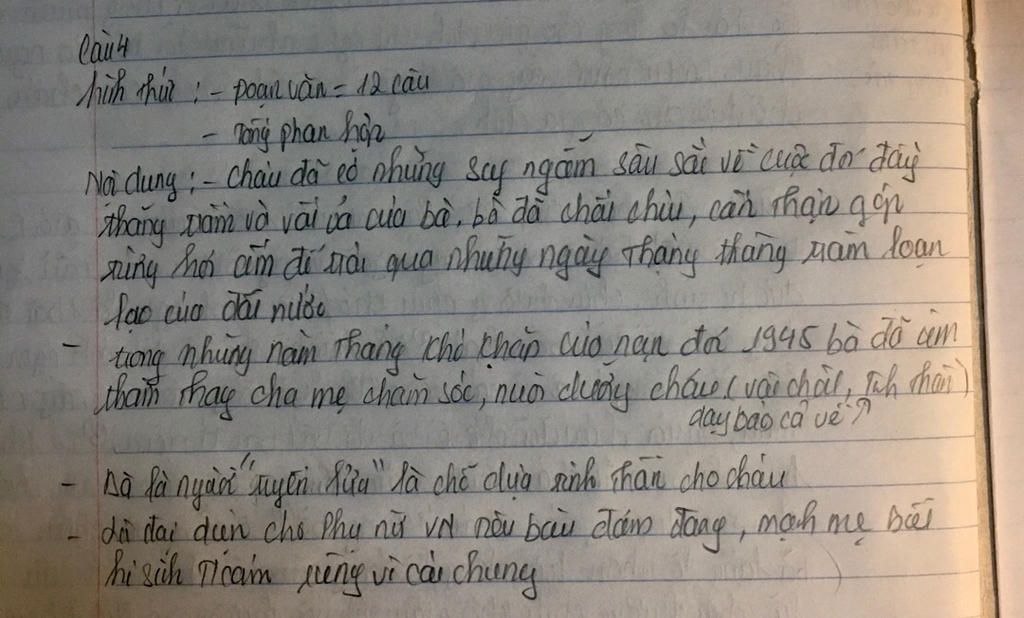 Câu 4
hình thức : - Đoạn văn = 12 câu
- Tổng phân hợp
Nội dung : - cháu đã có những suy ngẫm sâu sắc về cuộc đời đầy
thăng trầm và vất vả của bà. bà đã chải chiu, cẩn thận góp
từng hơi ấm để trải qua những ngày tháng thăng trầm loạn
lạc của đất nước
- trong những năm tháng khó khăn của nạn đói 1945 bà đã âm
thầm thay cha mẹ chăm sóc, nuôi dưỡng cháu (vật chất, tinh thần)
dạy bảo cả về ↗
- Bà là người "truyền lửa" là chỗ dựa tinh thần cho cháu
- là đại diện cho Phụ nữ VN đảm đang, mạnh mẽ biết
hi sinh T/cảm riêng vì cái chung